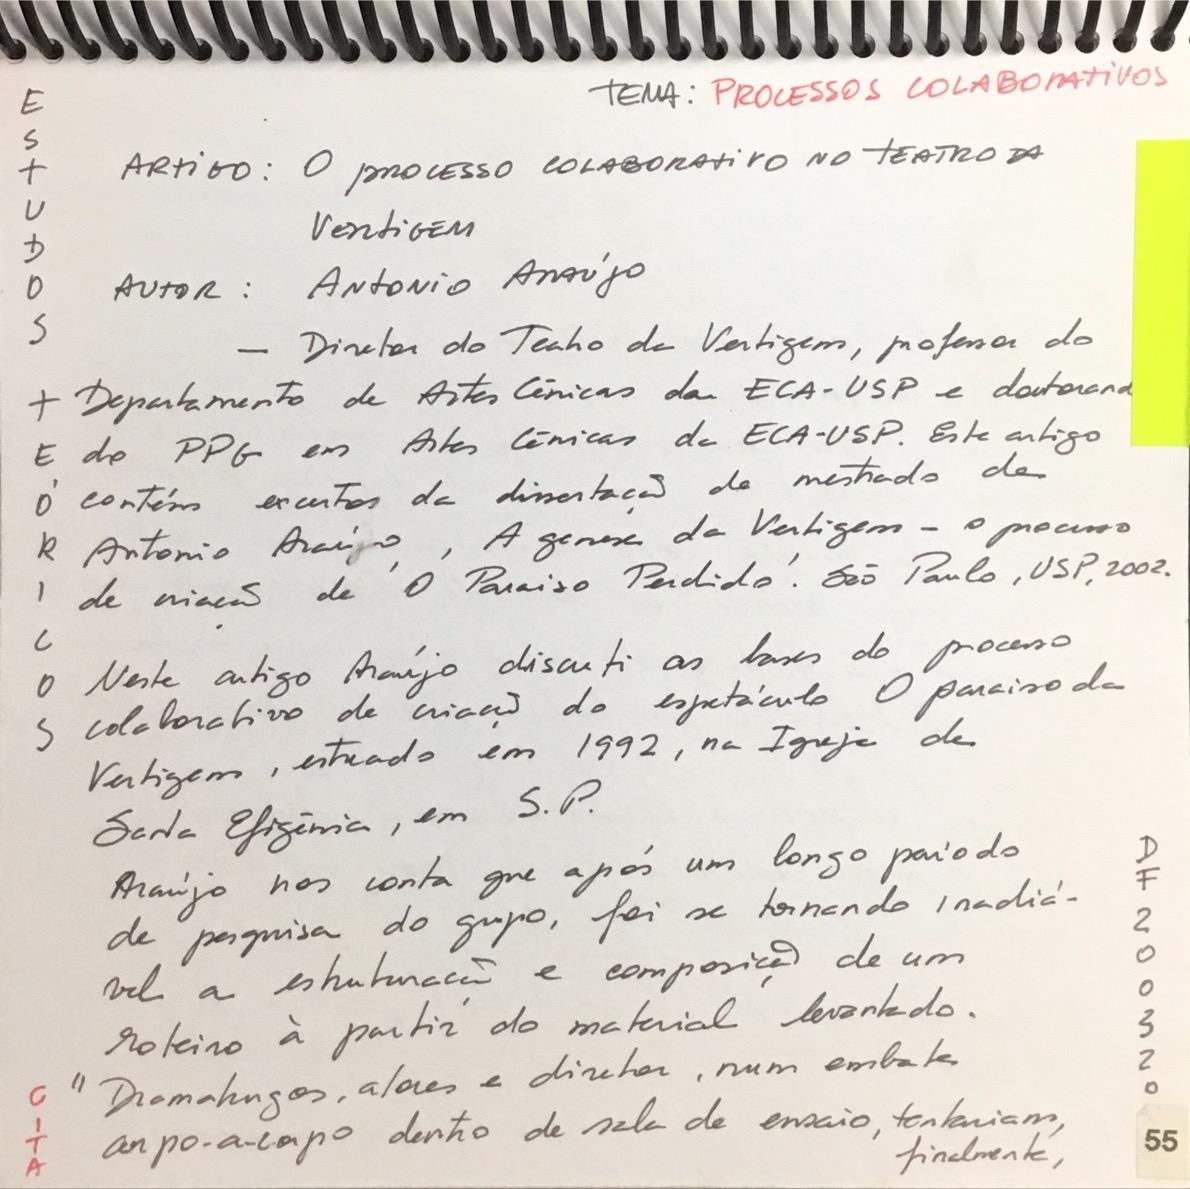 TEMA: PROCESSOS COLABORATIVOS
ESTUDOS TEÓRICOS
ARTIGO: O PROCESSO COLABORATIVO NO TEATRO DA
VERTIGEM
AUTOR: ANTONIO ARAÚJO
— Diretor do Teatro da Vertigem, professor do
Departamento de Artes Cênicas da ECA-USP e doutorand
do PPG em Artes Cênicas da ECA-USP. Este artigo
contém excertos da dissertação de mestrado de
Antonio Araújo, A genese da Vertigem - o processo
de criação de 'O Paraiso Perdido'. São Paulo, USP, 2002.
Neste artigo Araújo discuti as bases do processo
colaborativo de criação do espetáculo O paraiso da
Vertigem, estreado em 1992, na Igreja de
Santa Efigênia, em S.P.
Araújo nos conta que após um longo período
de pesquisa do grupo, foi se tornando inadiá-
vel a estruturação e composição de um
roteiro à partir do material levantado.
CITA
"Dramaturgos, atores e diretor, num embate
corpo-a-corpo dentro de sala de ensaio, tentariam,
finalmente,
DF200320
55